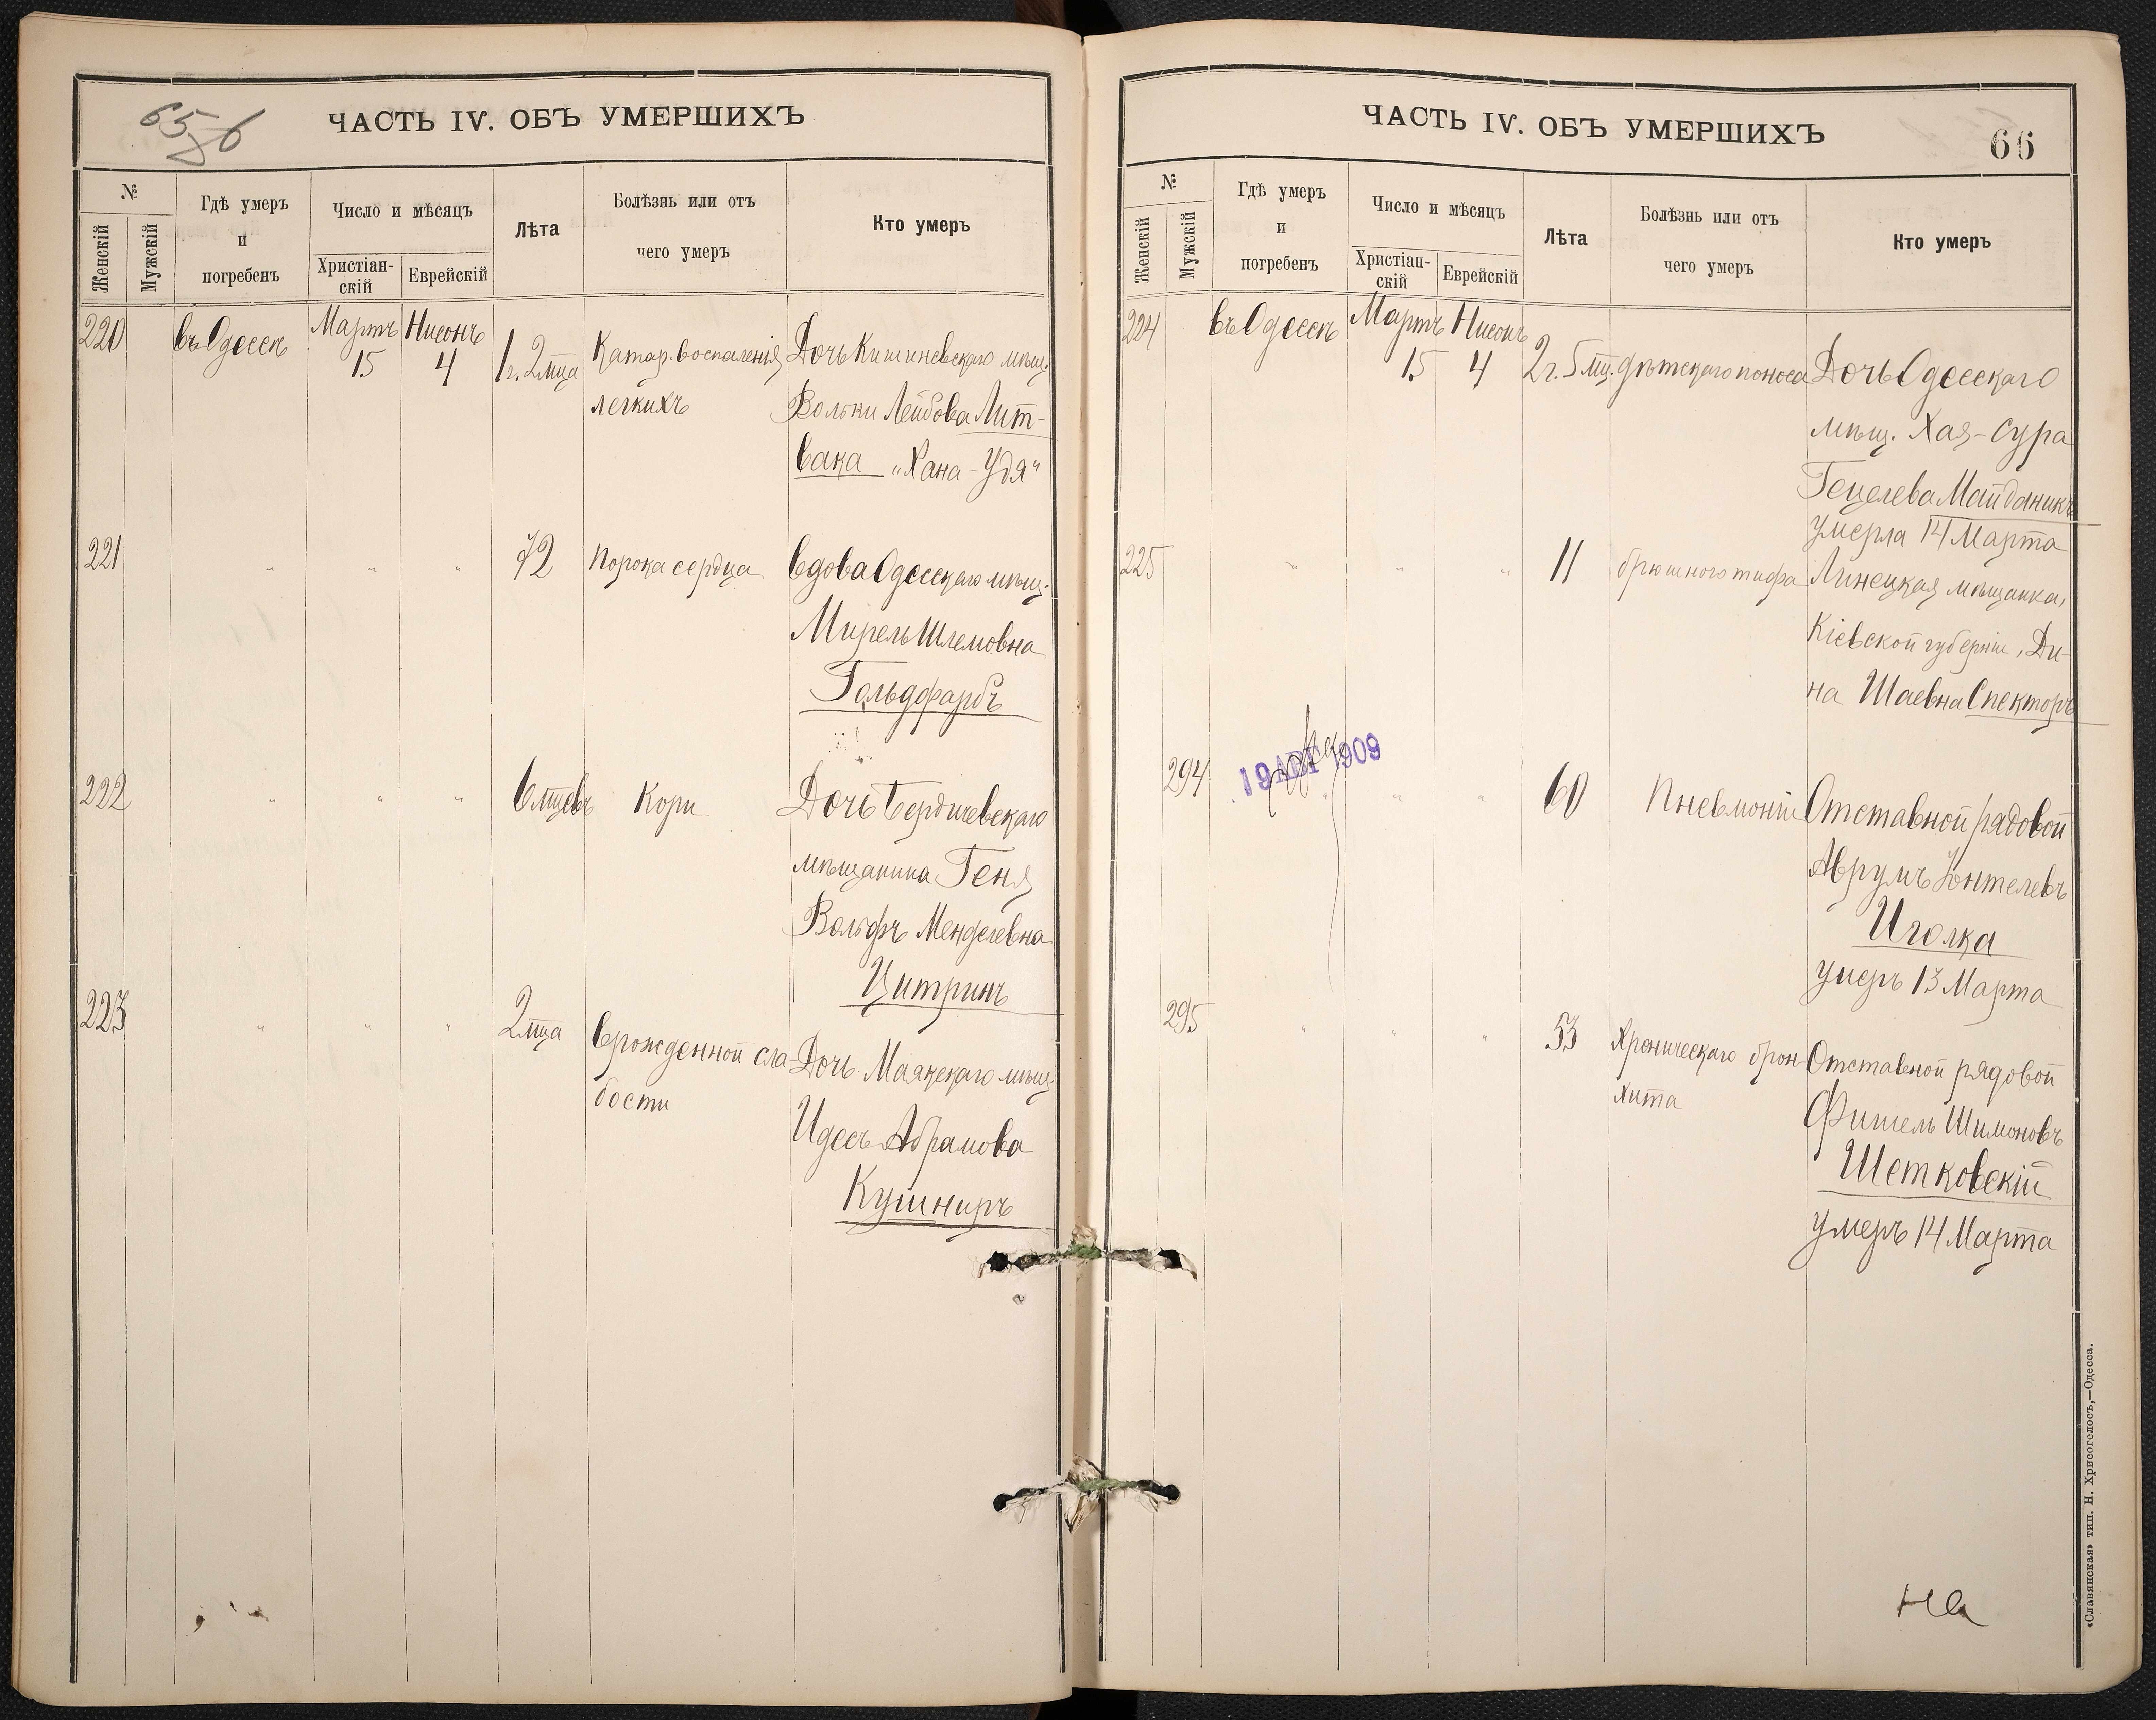 65 об
ЧАСТЬ IV. ОБЪ УМЕРШИХЪ
№
Женскій
Мужскій
Гдѣ умеръ
и
погребенъ
Число и мѣсяцъ
Христіан-
скій
Еврейскій
Лѣта
Болѣзнь или отъ
чего умеръ
Кто умеръ
220 въ Одессѣ Мартъ 15 Нисонъ 4 1 г. 2 мца Катар. воспаленія Дочь Кишиневскаго мѣщ.
легкихъ Вольки Лейбова Лит-
вака „Хана-Удя“
221 " " " 72 Порока сердца Вдова Одесскаго мѣщ.
Мирель Шлемовна
Гольдфарбъ
222 " " " 6 мцевъ Кори Дочь Бердичевскаго
мѣщанина Геня
Вольфъ Менделевна
Цитринъ
223 " " " 2 мца Врожденной сла- Дочь Маякскаго мѣщ.
бости Идесъ Абрамова
Кушниръ
ЧАСТЬ IV. ОБЪ УМЕРШИХЪ
66
№
Женскій
Мужскій
Гдѣ умеръ
и
погребенъ
Число и мѣсяцъ
Христіан-
скій
Еврейскій
Лѣта
Болѣзнь или отъ
чего умеръ
Кто умеръ
224 въ Одессѣ Мартъ 15 Нисонъ 4 2 г. 5 мц. дѣтскаго поноса Дочь Одесскаго
мѣщ. Хая-Сура
Гецелева Майданикъ
умерла 14 Марта
225 " " " 11 брюшного тифа Линецкая мѣщанка,
Кіевской губерніи, Ди-
на Шаевна Спекторъ
294 19 1909 " " " 60 Пневмоніи Отставной рядовой
Аврумъ Іонтелевъ
Иголка
умеръ 13 Марта
295 " " " 53 Хроническаго брон- Отставной рядовой
хита Фишель Шимоновъ
Шетковскій
умеръ 14 Марта
на
«Славянская» тип. Н. Хрисогелосъ,—Одесса.